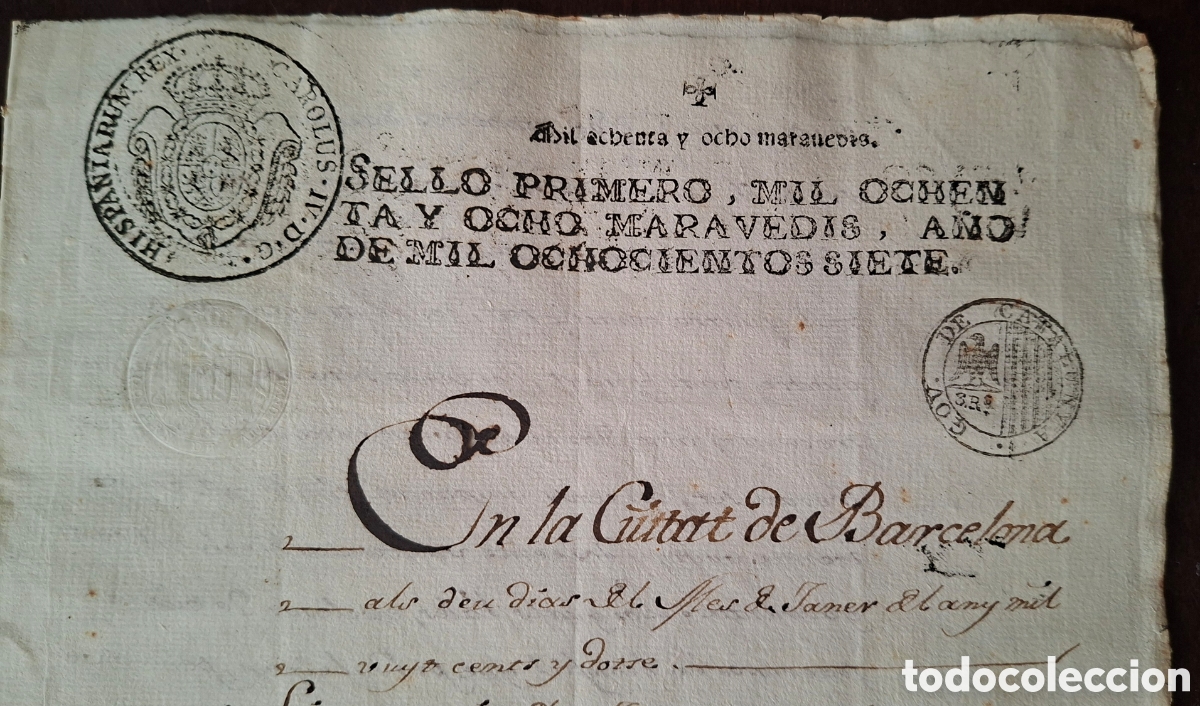 HISPANIARUM REY. CAROLUS·IV·D·G·
Mil ochenta y ocho maravedis.
SELLO PRIMERO, MIL OCHEN
TA Y OCHO MARAVEDIS, AÑO
DE MIL OCHOCIENTOS SIETE.
GOV. DE CATALUNYA.
S.R.
En la Ciutat de Barcelona
als deu dias del Mes de Janer del any mil
vuyt cents y dotse.
todocoleccion